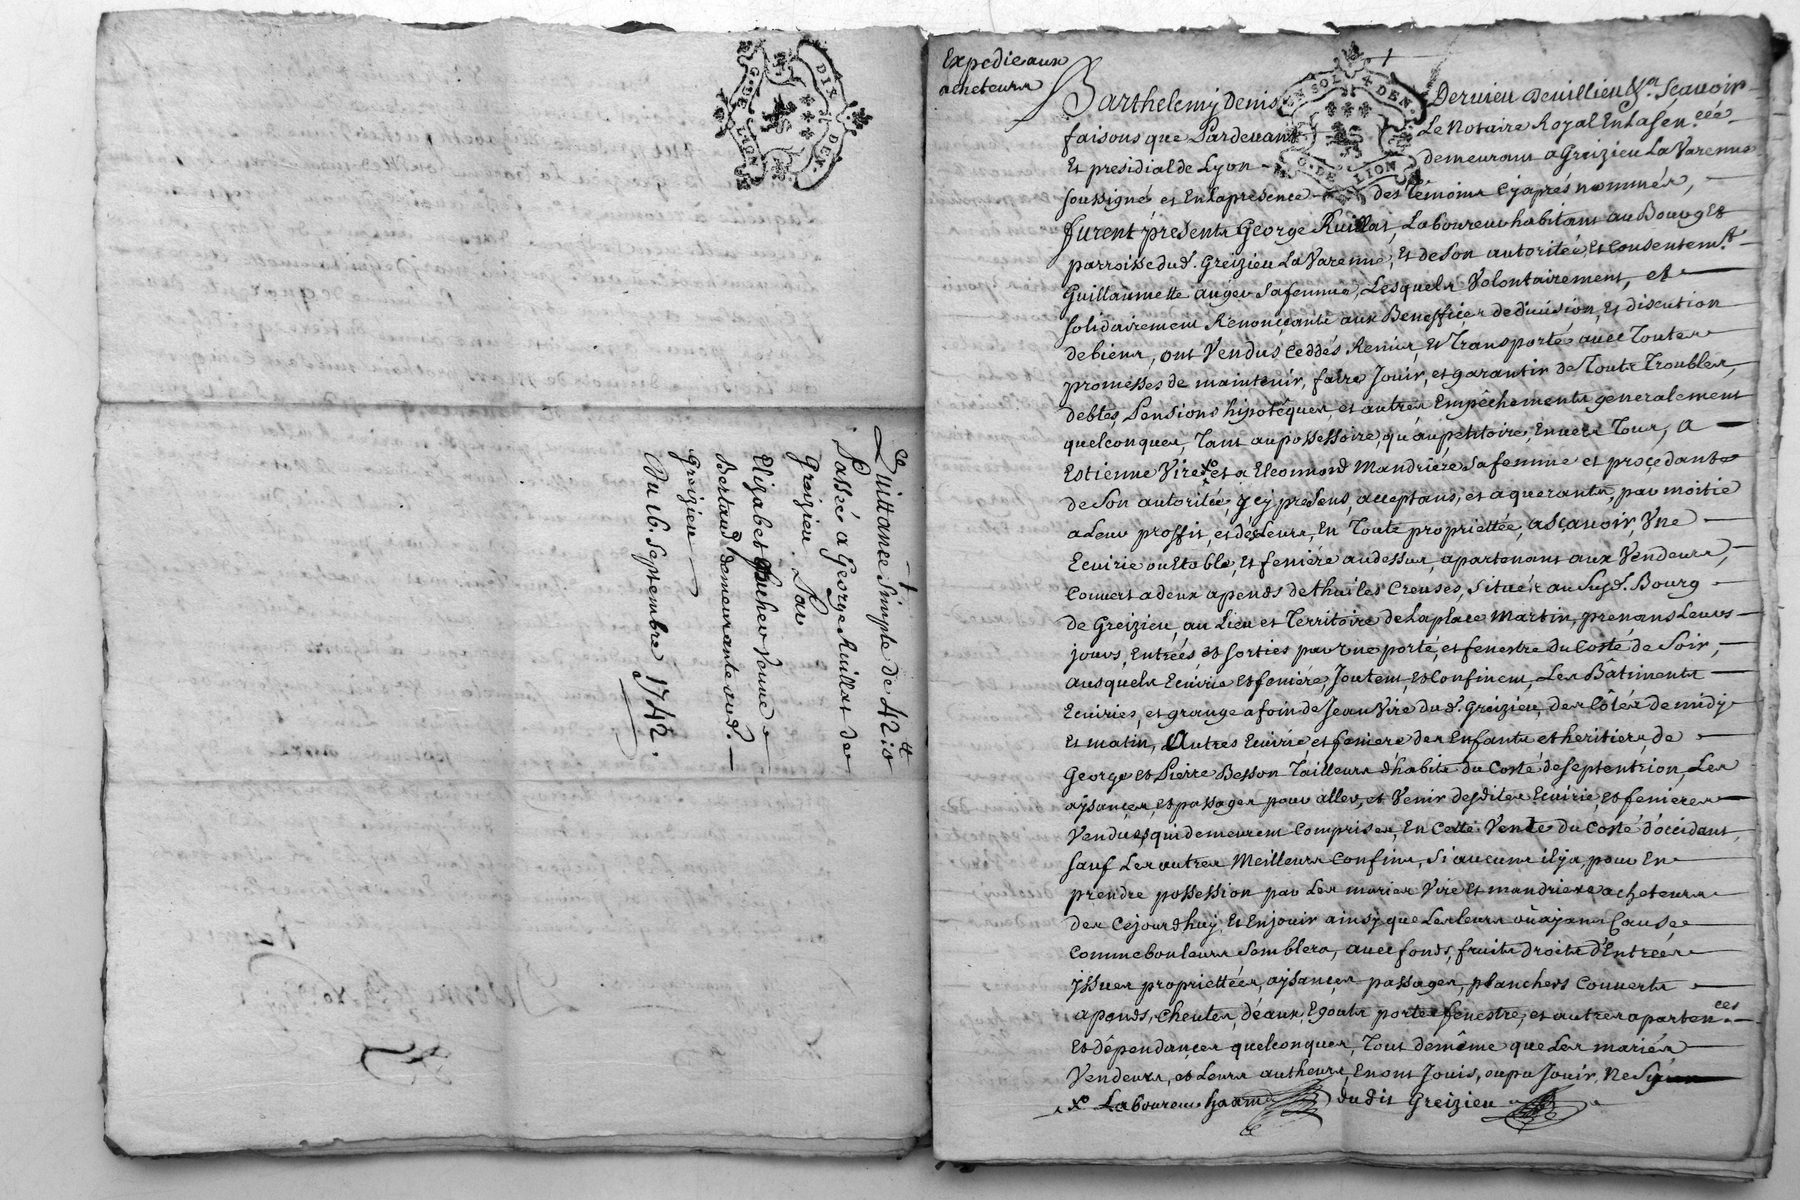 DIX DEN.
G. DE LION
Quittance Simple de 42₶ 10ˢ
Passée a George Ruillat de
Greizieu Par
Elizabet Gacher veuve
Bertaud demeurante aud.
Greizieu
Du 16. Septembre 1742.
Expedié aux
acheteurs
Barthelemy Denis Dervieu Devillieu &ª. Sçavoir
faisons que Pardevant Le Notaire Royal En La Sen.ceé
Et presidial de Lyon demeurant a Greizieu La Varenne
EN SOL X DEN.
G. DE LION
soussigné et En la presence des témoins cy aprés nommés,
furent présents George Ruillat, Laboureur habitant au Bourg Et
parroisse dud. Greizieu La Varenne, Et de Son autorité, Et consentem.t
Guillaumette auger sa femme, Lesquels Volontairement, et
solidairement Renonçants aux Benefices de division, Et discution
de biens, ont Vendus Ceddés Remis, Et Transportés avec Toutes
promesses de maintenir, faire Jouir, et garantir de Touts Troubles,
debtes, Pensions hipotéques, et autres Empêchements generalement
quelconques, Tant au possessoire, qu'au petitoire, Envers Tous, A
Estienne Vire xº et a Eleomord Mandriére sa femme et procedante
de Son autorité, Icy presens, acceptans, et aquerants, par moitié
a Leur proffit, et des Leurs, En Toute propriettée, asçavoir, Vne
Ecuirie ou Etable, Et feniére au dessus, apartenant aux Vendeurs,
Couvert a deux apends de thuiles Creuses, Situés au Susd. Bourg
de Greizieu, au Lieu et Territoire de La place Martin, prenans Leurs
jours, Entrées, et Sorties par Une porte, et fenestre du Costé de Soir,
ausquels Ecuirie Et feniére Joutent, Et Confinent, Les Bâtiments
Ecuiries, et grange a foin de Jean Vire du d. Greizieu, des Côtés de midy
Et matin, Autres Ecuirie et feniere des Enfants et heritiers de
George Et Pierre Besson Tailleurs d'habits du Costé de septentrion, Les
aysances, Et passages pour aller, et Venir desdites Ecuirie, Et feniere
Vendues, qui demeurent Comprises, En Cette Vente du Costé d'occidant,
sauf Les autres Meilleurs Confins, Si aucuns il y a, pour En
prendre possession par Les mariés Vire Et mandriere acheteurs
dez Cejourdhuy, Et En jouir ainsy que Les leurs où ayant Cause
Comme bon leurs Semblera, avec fonds, fruits droits d'Entrées
Issues propriettées, aysances passages, planchers Couverts
aponds, Cheutes, d'eaux, Egouts portes fenestre, et autres aparten.ces
Et dépendances quelconques, Tout de même que Les mariés
Vendeurs, et Leurs autheurs, En ont Jouis, ou pu Jouir, Ne
xº Laboureur dudit Greizieu